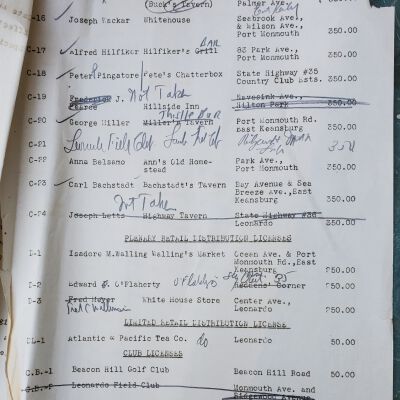 (Buck's Tavern) Palmer Ave.,
C-16 Joseph Wackar Whitehouse Seabrook Ave.,
& Wilson Ave.,
Port Monmouth 350.00
BAR
C-17 Alfred Hilfiker Hilfiker's Grill 83 Park Ave.,
Port Monmouth 350.00
C-18 Peter Pingatore Pete's Chatterbox State Highway #35
Country Club Ests. 350.00
C-19 Frederick J. Not Taken Navesink Ave.,
Pearce Hillside Inn Hilton Park 350.00
C-20 George Miller Miller's Tavern Port Monmouth Rd.
East Keansburg 350.00
C-21 350
C-22 Anna Belsamo Ann's Old Home-
stead Park Ave.,
Port Monmouth 350.00
C-23 Carl Bachstadt Bachstadt's Tavern Bay Avenue & Sea
Breeze Ave.,East
Keansburg 350.00
Not Taken
C-24 Joseph Letts Highway Tavern State Highway #36
Leonardo 350.00
PLENARY RETAIL DISTRIBUTION LICENSES
D-1 Isadore M.Walling Walling's Market Ocean Ave. & Port
Monmouth Rd.,East
Keansburg 250.00
D-2 Edward J. O'Flaherty Corner 250.00
D-3 Fred Hoyer White House Store Center Ave.,
Leonardo 250.00
LIMITED RETAIL DISTRIBUTION LICENSE
DL-1 Atlantic & Pacific Tea Co. Leonardo 50.00
CLUB LICENSES
C.B.-1 Beacon Hill Golf Club Beacon Hill Road 50.00
C.B.-2 Leonardo Field Club Monmouth Ave. and
Ridgewood Avenue